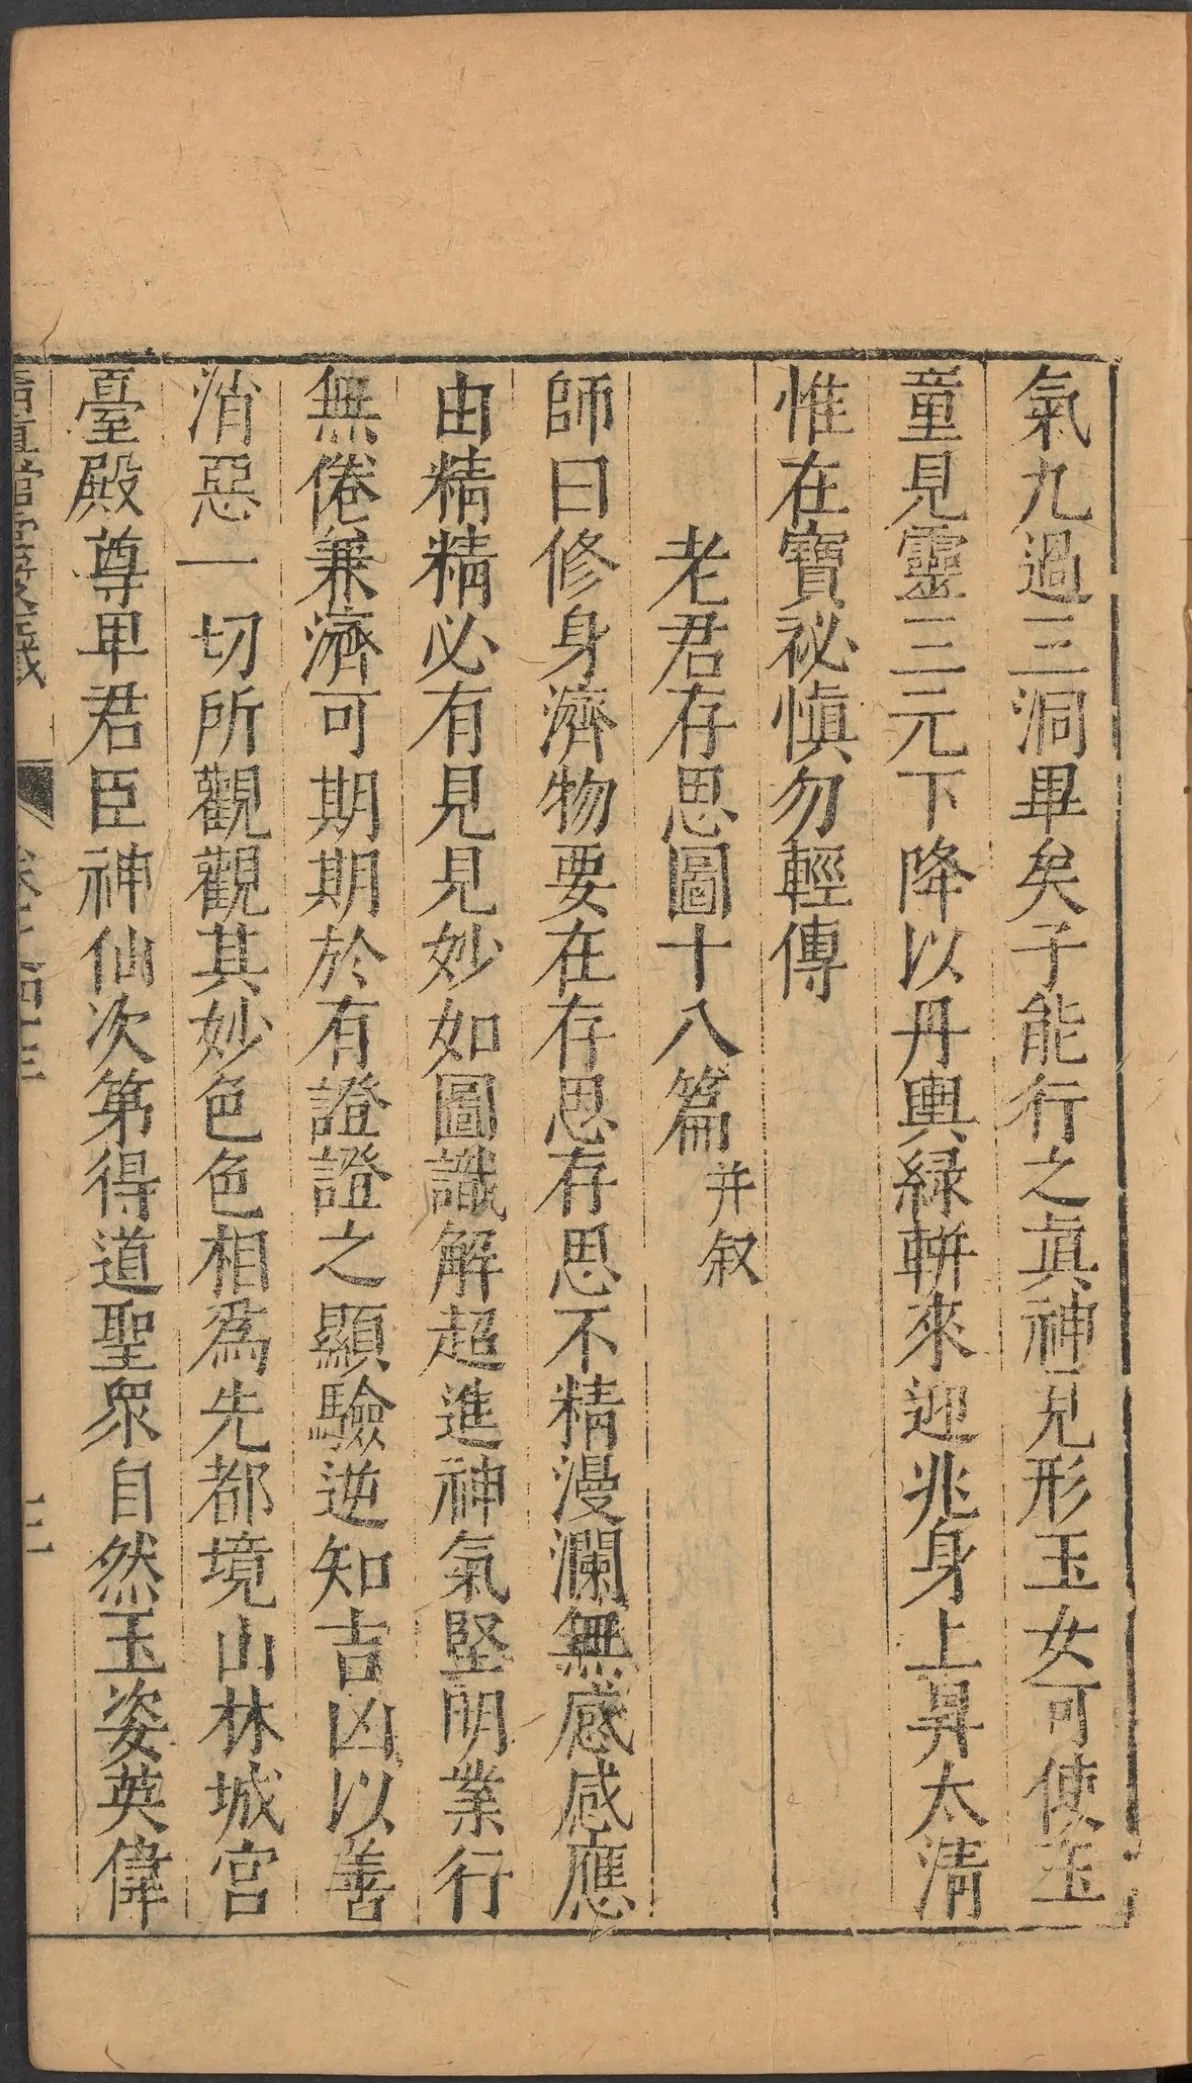 氣九過三洞畢矣子能行之眞神見形玉女可使玉
童見靈三元下降以丹輿緑軿來迎兆身上昇太清
惟在寶祕慎勿輕傳
老君存思圖十八篇并叙
師曰修身濟物要在存思存思不精漫瀾無感感應
由精精必有見見妙如圖識解超進神氣堅明業行
無倦兼濟可期期於有證證之顯驗逆知吉凶以善
消惡一切所觀觀其妙色色相爲先都境山林城宫
臺殿尊卑君臣神仙次第得道聖衆自然玉姿英偉